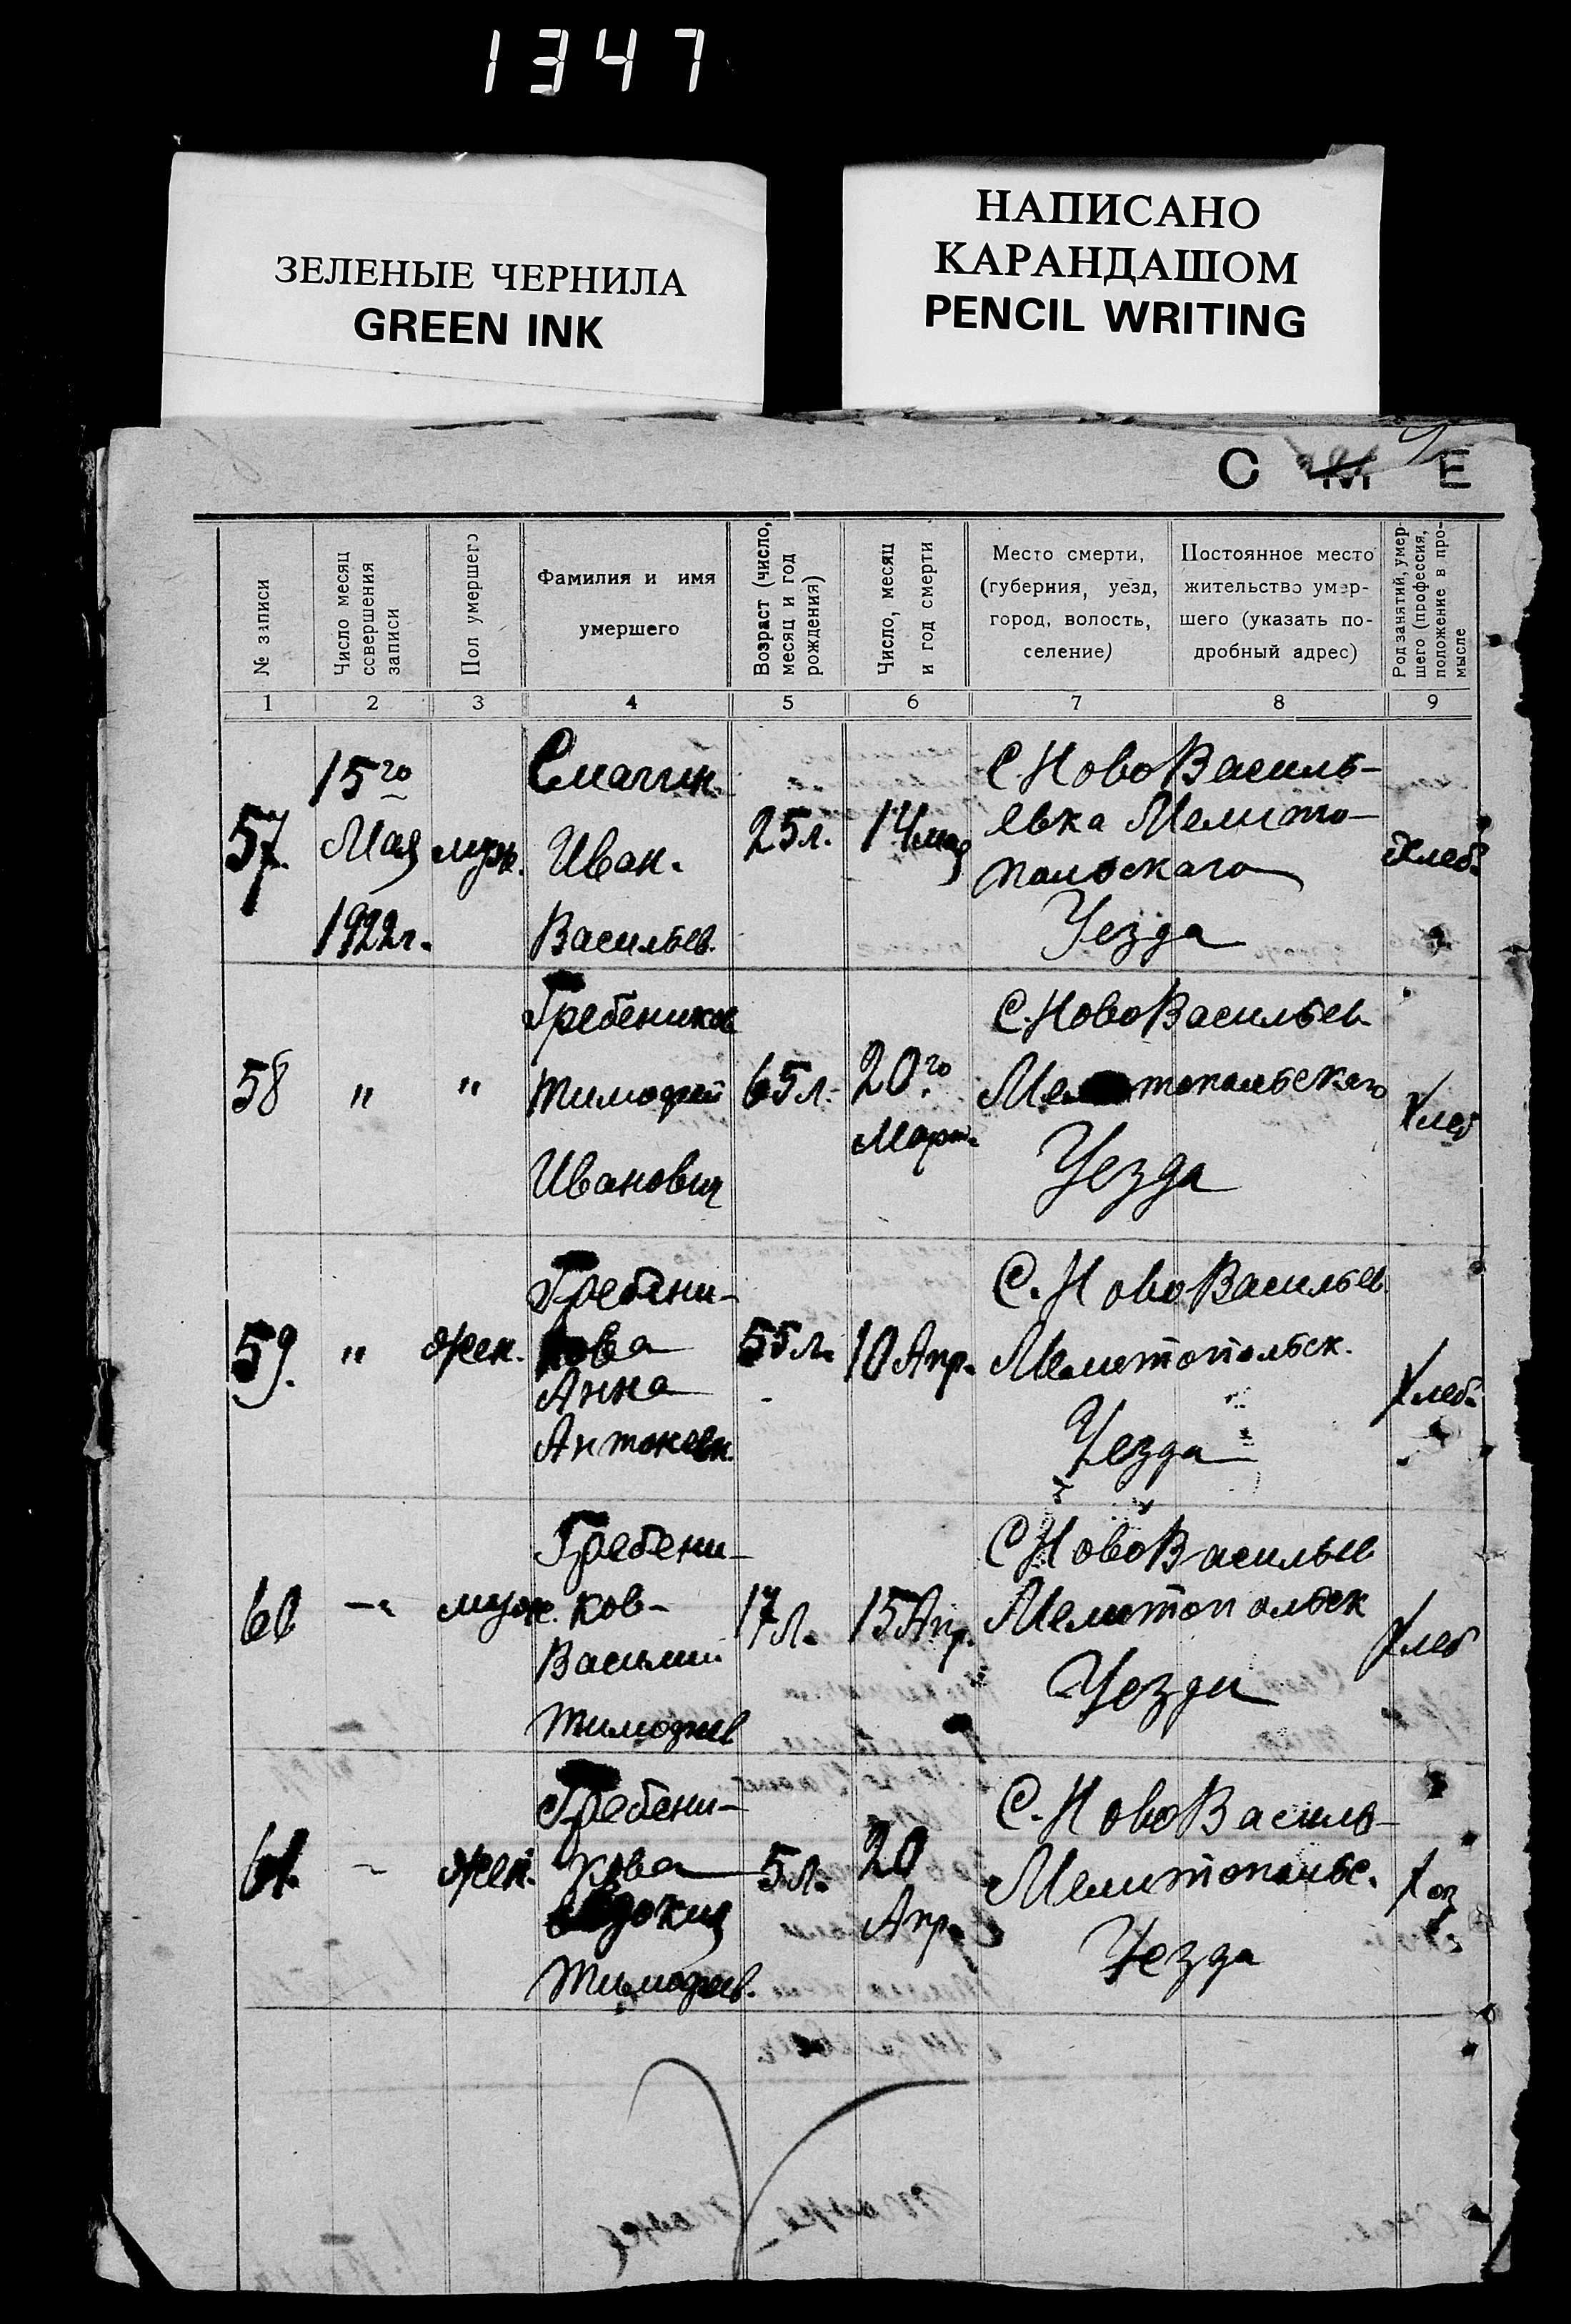 1347
ЗЕЛЕНЫЕ ЧЕРНИЛА
GREEN INK
НАПИСАНО
КАРАНДАШОМ
PENCIL WRITING
С М Е
№ записи
Число месяц совершения записи
Пол умершего
Фамилия и имя умершего
Возраст (число, месяц и год рождения)
Число, месяц и год смерти
Место смерти, (губерния, уезд, город, волость, селение)
Постоянное место жительство умер-шего (указать по-дробный адрес)
Род занятий, умер-шего (профессия, положение в про-мысле
1 2 3 4 5 6 7 8 9
57. 15го Мая 1922г. муж. Смагин. Иван. Васильев. 25л. 14 мая С. Ново Василь-евка Мелито-польскаго Уезда Хлеб.
58 " " Гребеников Тимофей Иванович 65л. 20го Март. С. Ново Васильев Мелитопольскаго Уезда Хлеб
59. " жен. Гребени-кова Анна Антонов. 55л. 10 Апр. С. Ново Васильев. Мелитопольск. Уезда Хлеб.
60 муж. Гребени-ков- Василий Тимофеев 17л. 15 Апр. С. Ново Васильев Мелитопольск Уезда Хлеб
61. жен. Гребени-кова Евдокия Тимофеев. 5л. 20 Апр. С. Ново Василь- Мелитопольс. Уезда